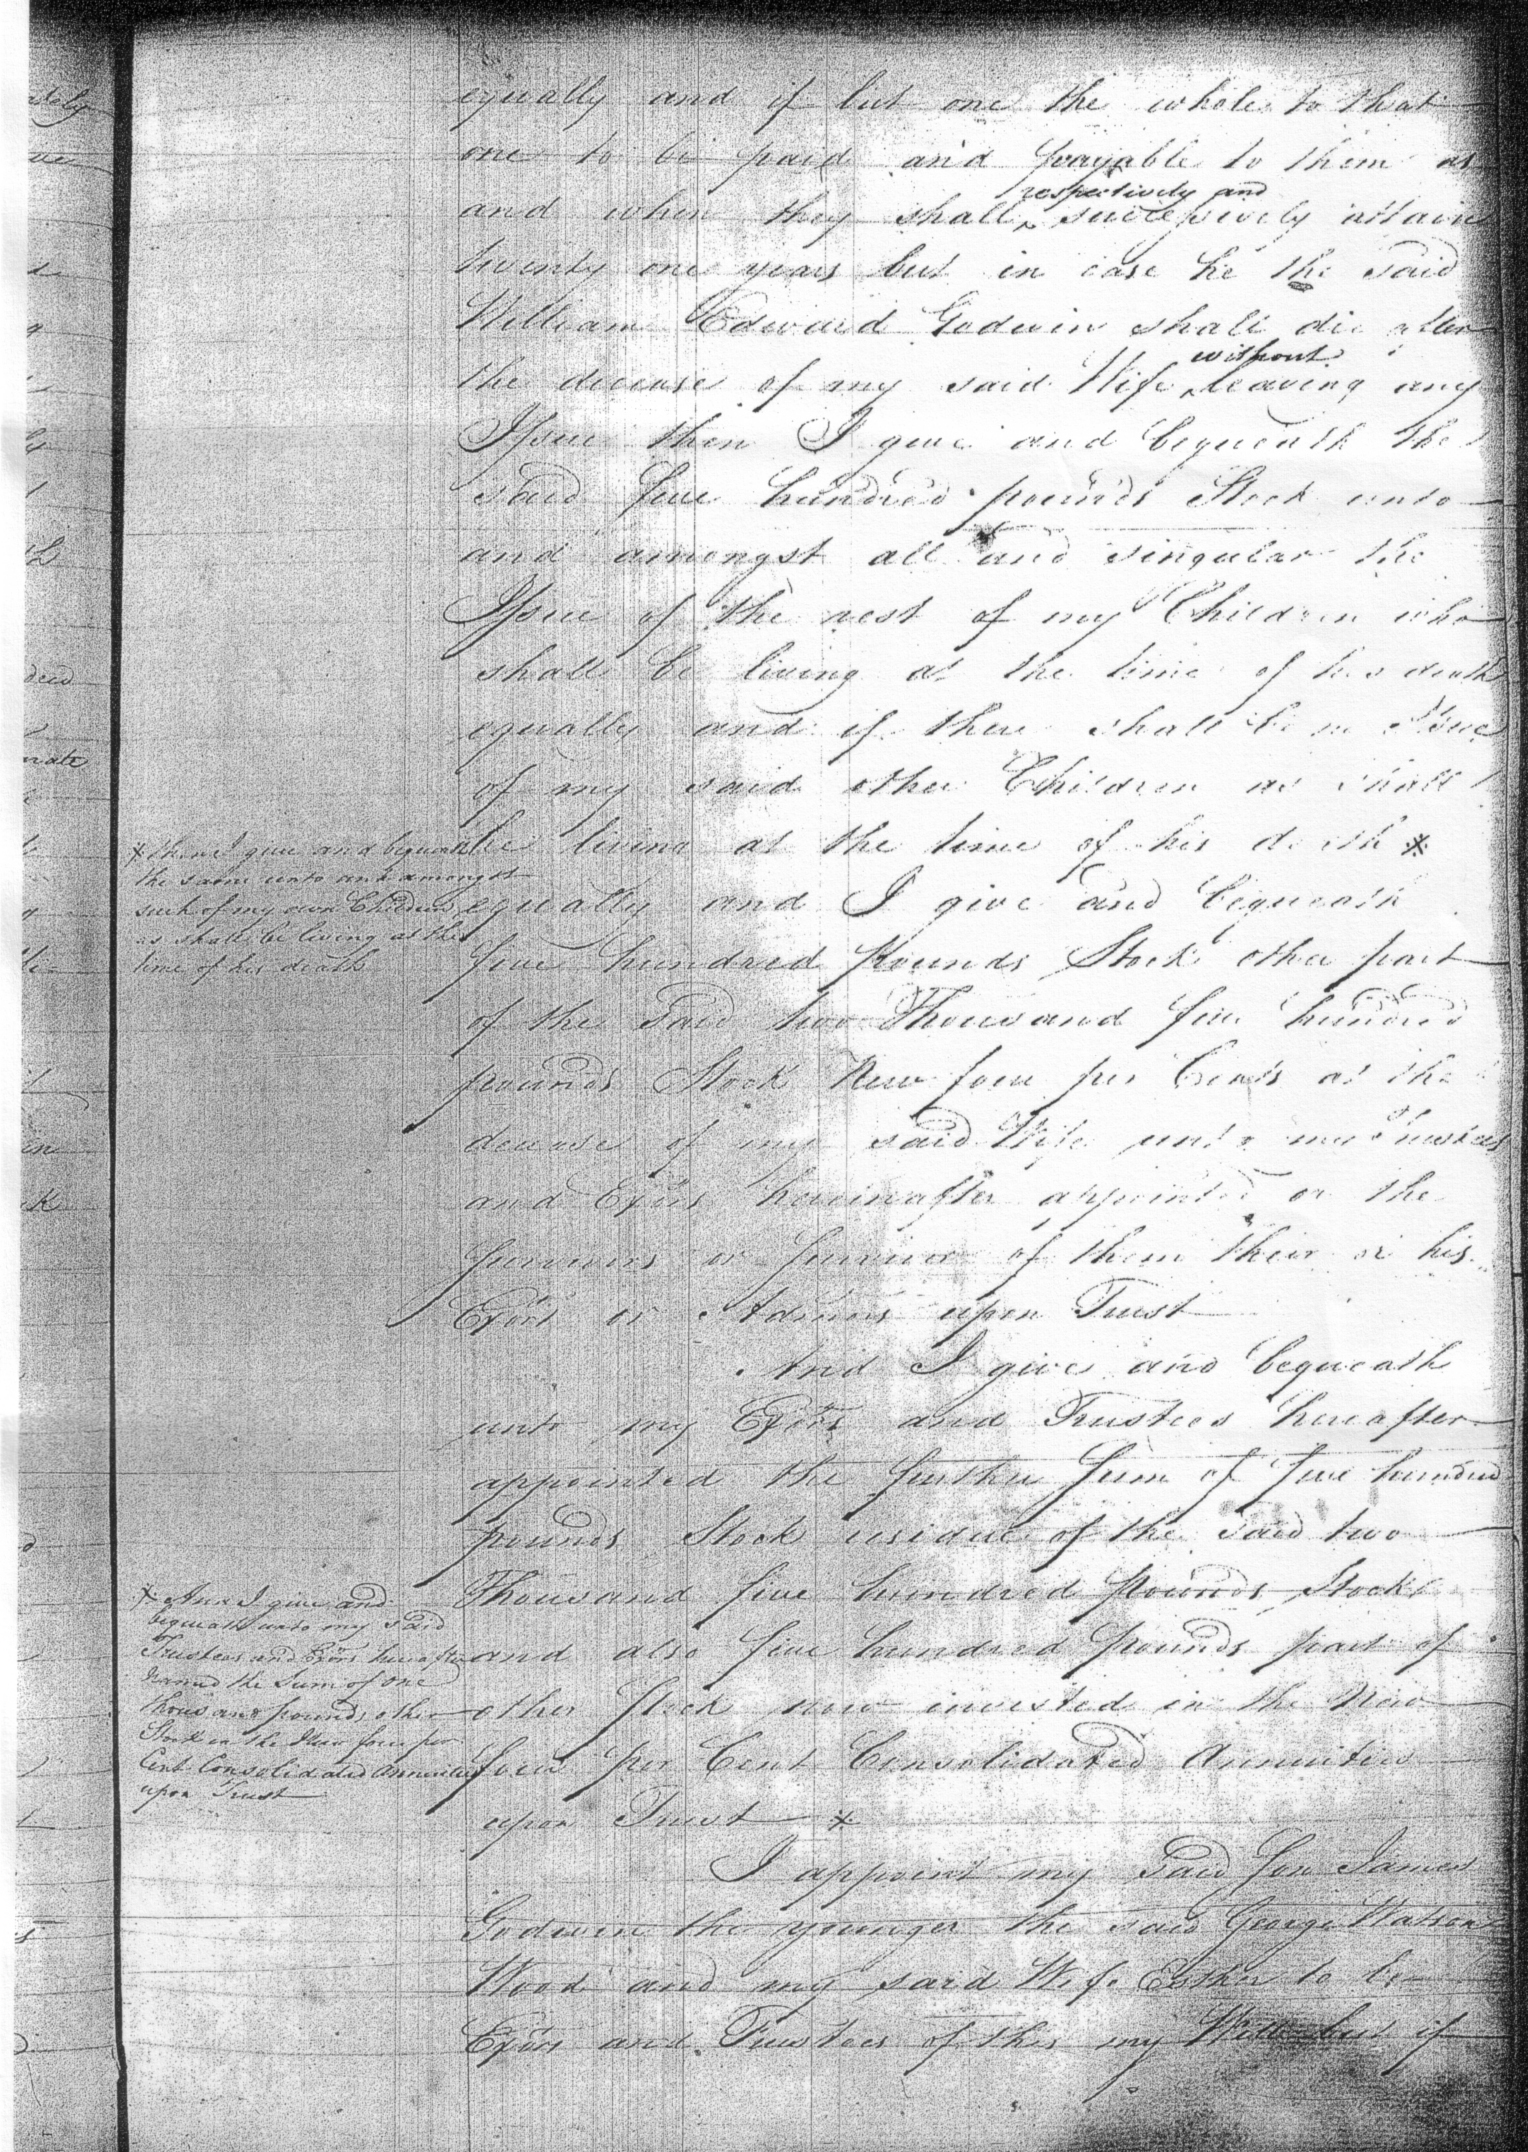 equally and if but one the whole to that
one to be paid and payable to them as
respectively and
and when they shall ‸ successively attain
twenty one years but in case he the said
William Edward Godwin shall die after
without
the decease of my said Wife ‸ leaving any
Issue then I give and bequeath the
said five hundred pounds Stock unto
and amongst all and singular the
Issue of the rest of my Children who
shall be living at the time of his death
equally and if there shall be no Issue
of my said other Children as shall
be living at the time of his death *
* then I give and bequeath
the same unto and amongst
such of my own Children
as shall be living at the
time of his death
equally and I give and bequeath
five hundred Pounds Stock other part
of the said two Thousand five hundred
pounds Stock New four per Cents at the
decease of my said Wife unto my Trustees
and Exors hereinafter appointed or the
Survivors or Survivor of them their or his
Exors or Admins upon Trust
And I give and bequeath
unto my Exors and Trustees hereafter
appointed the further Sum of five hundred
pounds Stock residue of the said two
Thousand five hundred Pounds Stock
and also five hundred Pounds part of
other Stock now invested in the New
four per Cent Consolidated Annuities
upon Trust *
* And I give and
bequeath unto my said
Trustees and Exors hereafter
named the Sum of one
thousand pounds other
Stock in the New four per
Cent Consolidated Annuities
upon Trust
I appoint my said Son James
Godwin the younger the said George Watson
Wood and my said Wife Esther to be
Exors and Trustees of this my Will but if